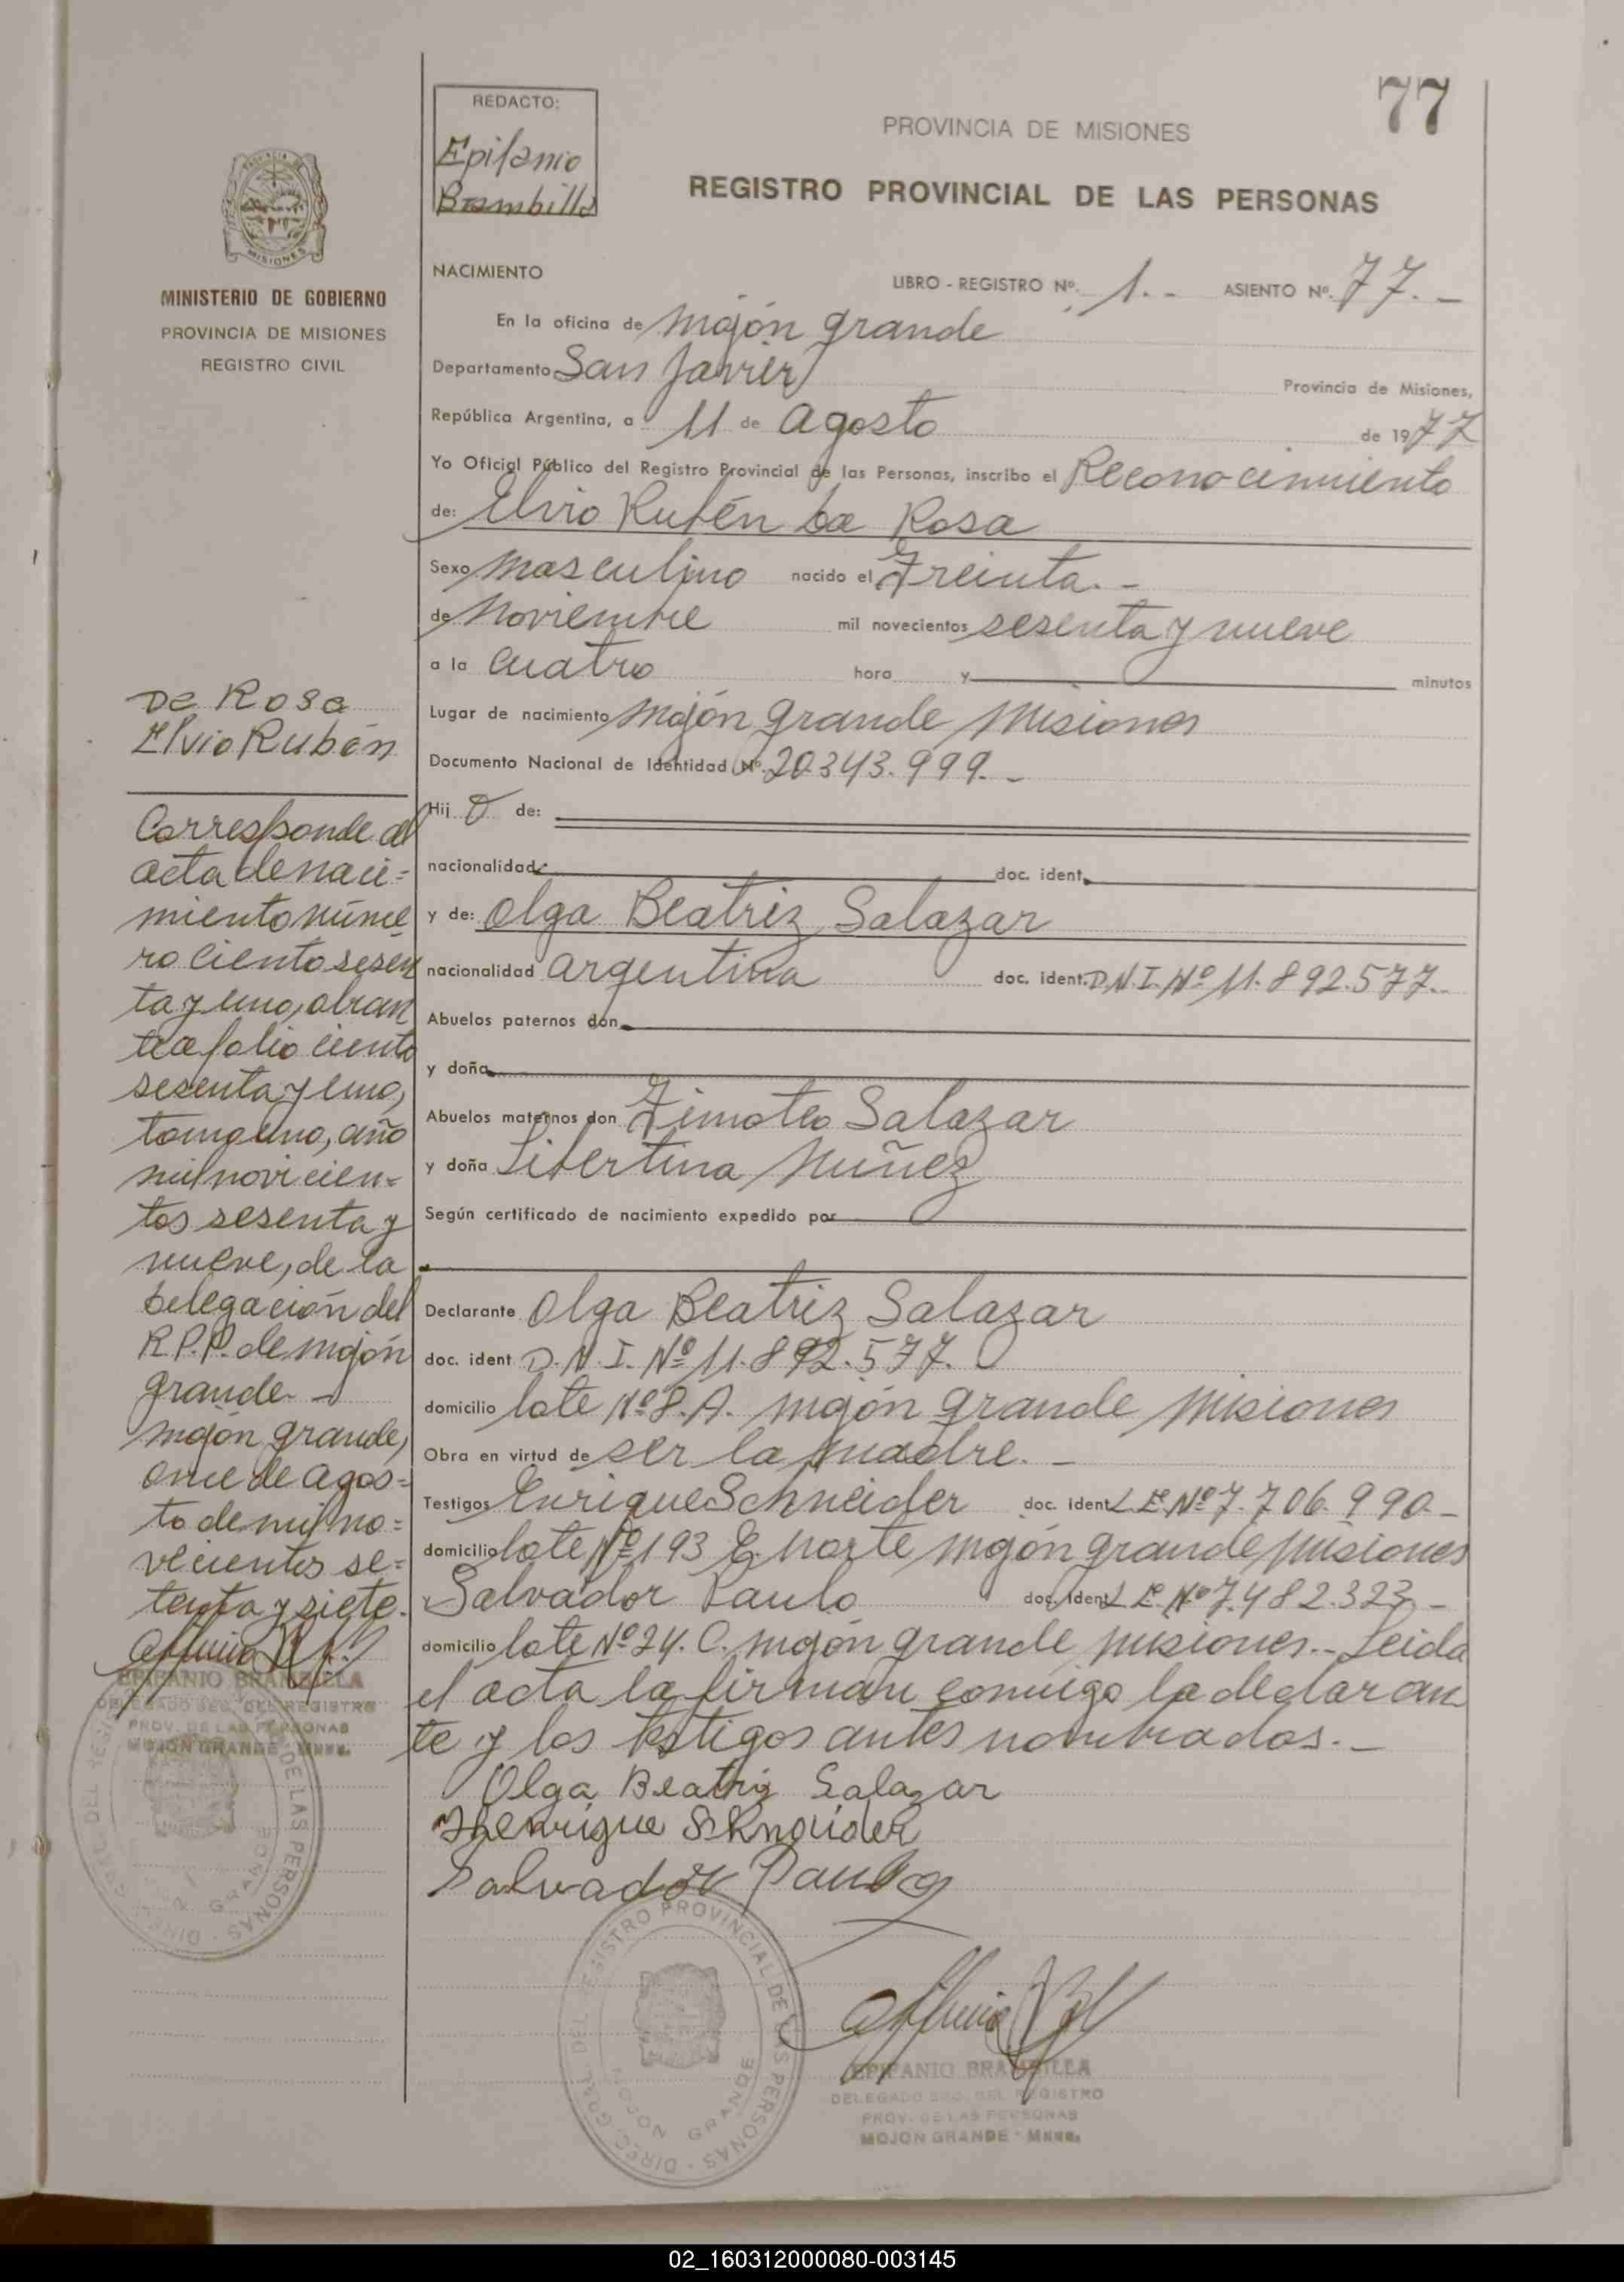 77
REDACTO:
Epifanio
Brambilla
PROVINCIA DE MISIONES
REGISTRO PROVINCIAL DE LAS PERSONAS
MINISTERIO DE GOBIERNO
PROVINCIA DE MISIONES
REGISTRO CIVIL
NACIMIENTO
LIBRO - REGISTRO Nº. 1.- ASIENTO Nº. 77.-
En la oficina de Mojón grande
Departamento San Javier Provincia de Misiones,
República Argentina, a 11 de Agosto de 1977
Yo Oficial Público del Registro Provincial de las Personas, inscribo el Reconocimiento
de: Elvio Rubén Da Rosa
Sexo masculino nacido el Treinta.-
de Noviembre mil novecientos sesenta y nueve
a la cuatro hora y minutos
Lugar de nacimiento Mojón grande Misiones
Documento Nacional de Identidad Nº. 20.343.999.-
Hij o de:
nacionalidad doc. ident.
y de: Olga Beatriz Salazar
nacionalidad argentina doc. ident. D.N.I. Nº 11.892.577.-
Abuelos paternos don
y doña
Abuelos maternos don Timoteo Salazar
y doña Libertina Nuñez
Según certificado de nacimiento expedido por
Declarante Olga Beatriz Salazar
doc. ident D.N.I. Nº 11.892.577.
domicilio lote Nº 8.A. Mojón grande Misiones
Obra en virtud de ser la madre.-
Testigos Enrique Schneider doc. ident L.E. Nº 7.706.990-
domicilio lote Nº 193 E. norte Mojón grande Misiones
Salvador Paulo doc. ident L.E. Nº 7.482.323-
domicilio lote Nº 24. C. Mojón grande Misiones.- Leida
el acta la firman conmigo la declaran
te y los testigos antes nombrados.-
Olga Beatriz Salazar
Salvador Paulo
EPIFANIO BRAMBILLA
DELEGADO SEC. DEL REGISTRO
PROV. DE LAS PERSONAS
MOJON GRANDE - Mnes.
DIREC. GRAL. DEL REGISTRO PROVINCIAL DE LAS PERSONAS
MOJON GRANDE
De Rosa
Elvio Rubén
Corresponde al
acta de naci=
miento núme
ro ciento sesen
ta y uno, obran
te a folio ciento
sesenta y uno,
tomo uno, año
mil novecien=
tos sesenta y
nueve, de la
Delegación del
R.P.P. de Mojón
grande.-
Mojón grande,
once de agos=
to de mil no=
vecientos se=
tenta y siete.
EPIFANIO BRAMBILLA
DELEGADO SEC. DEL REGISTRO
PROV. DE LAS PERSONAS
MOJON GRANDE - Mnes.
02_160312000080-003145